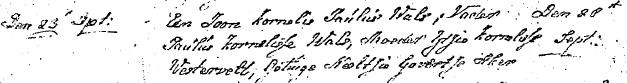 Den 23 Sept: Een Zoon Kornelis Paulus Wals, Vader Den 28
Paulus Kornelisse Wals, Moeder Tryntje Kornelisse Sept:
Vestervelt, Getuige Neeltje Govertse Aker